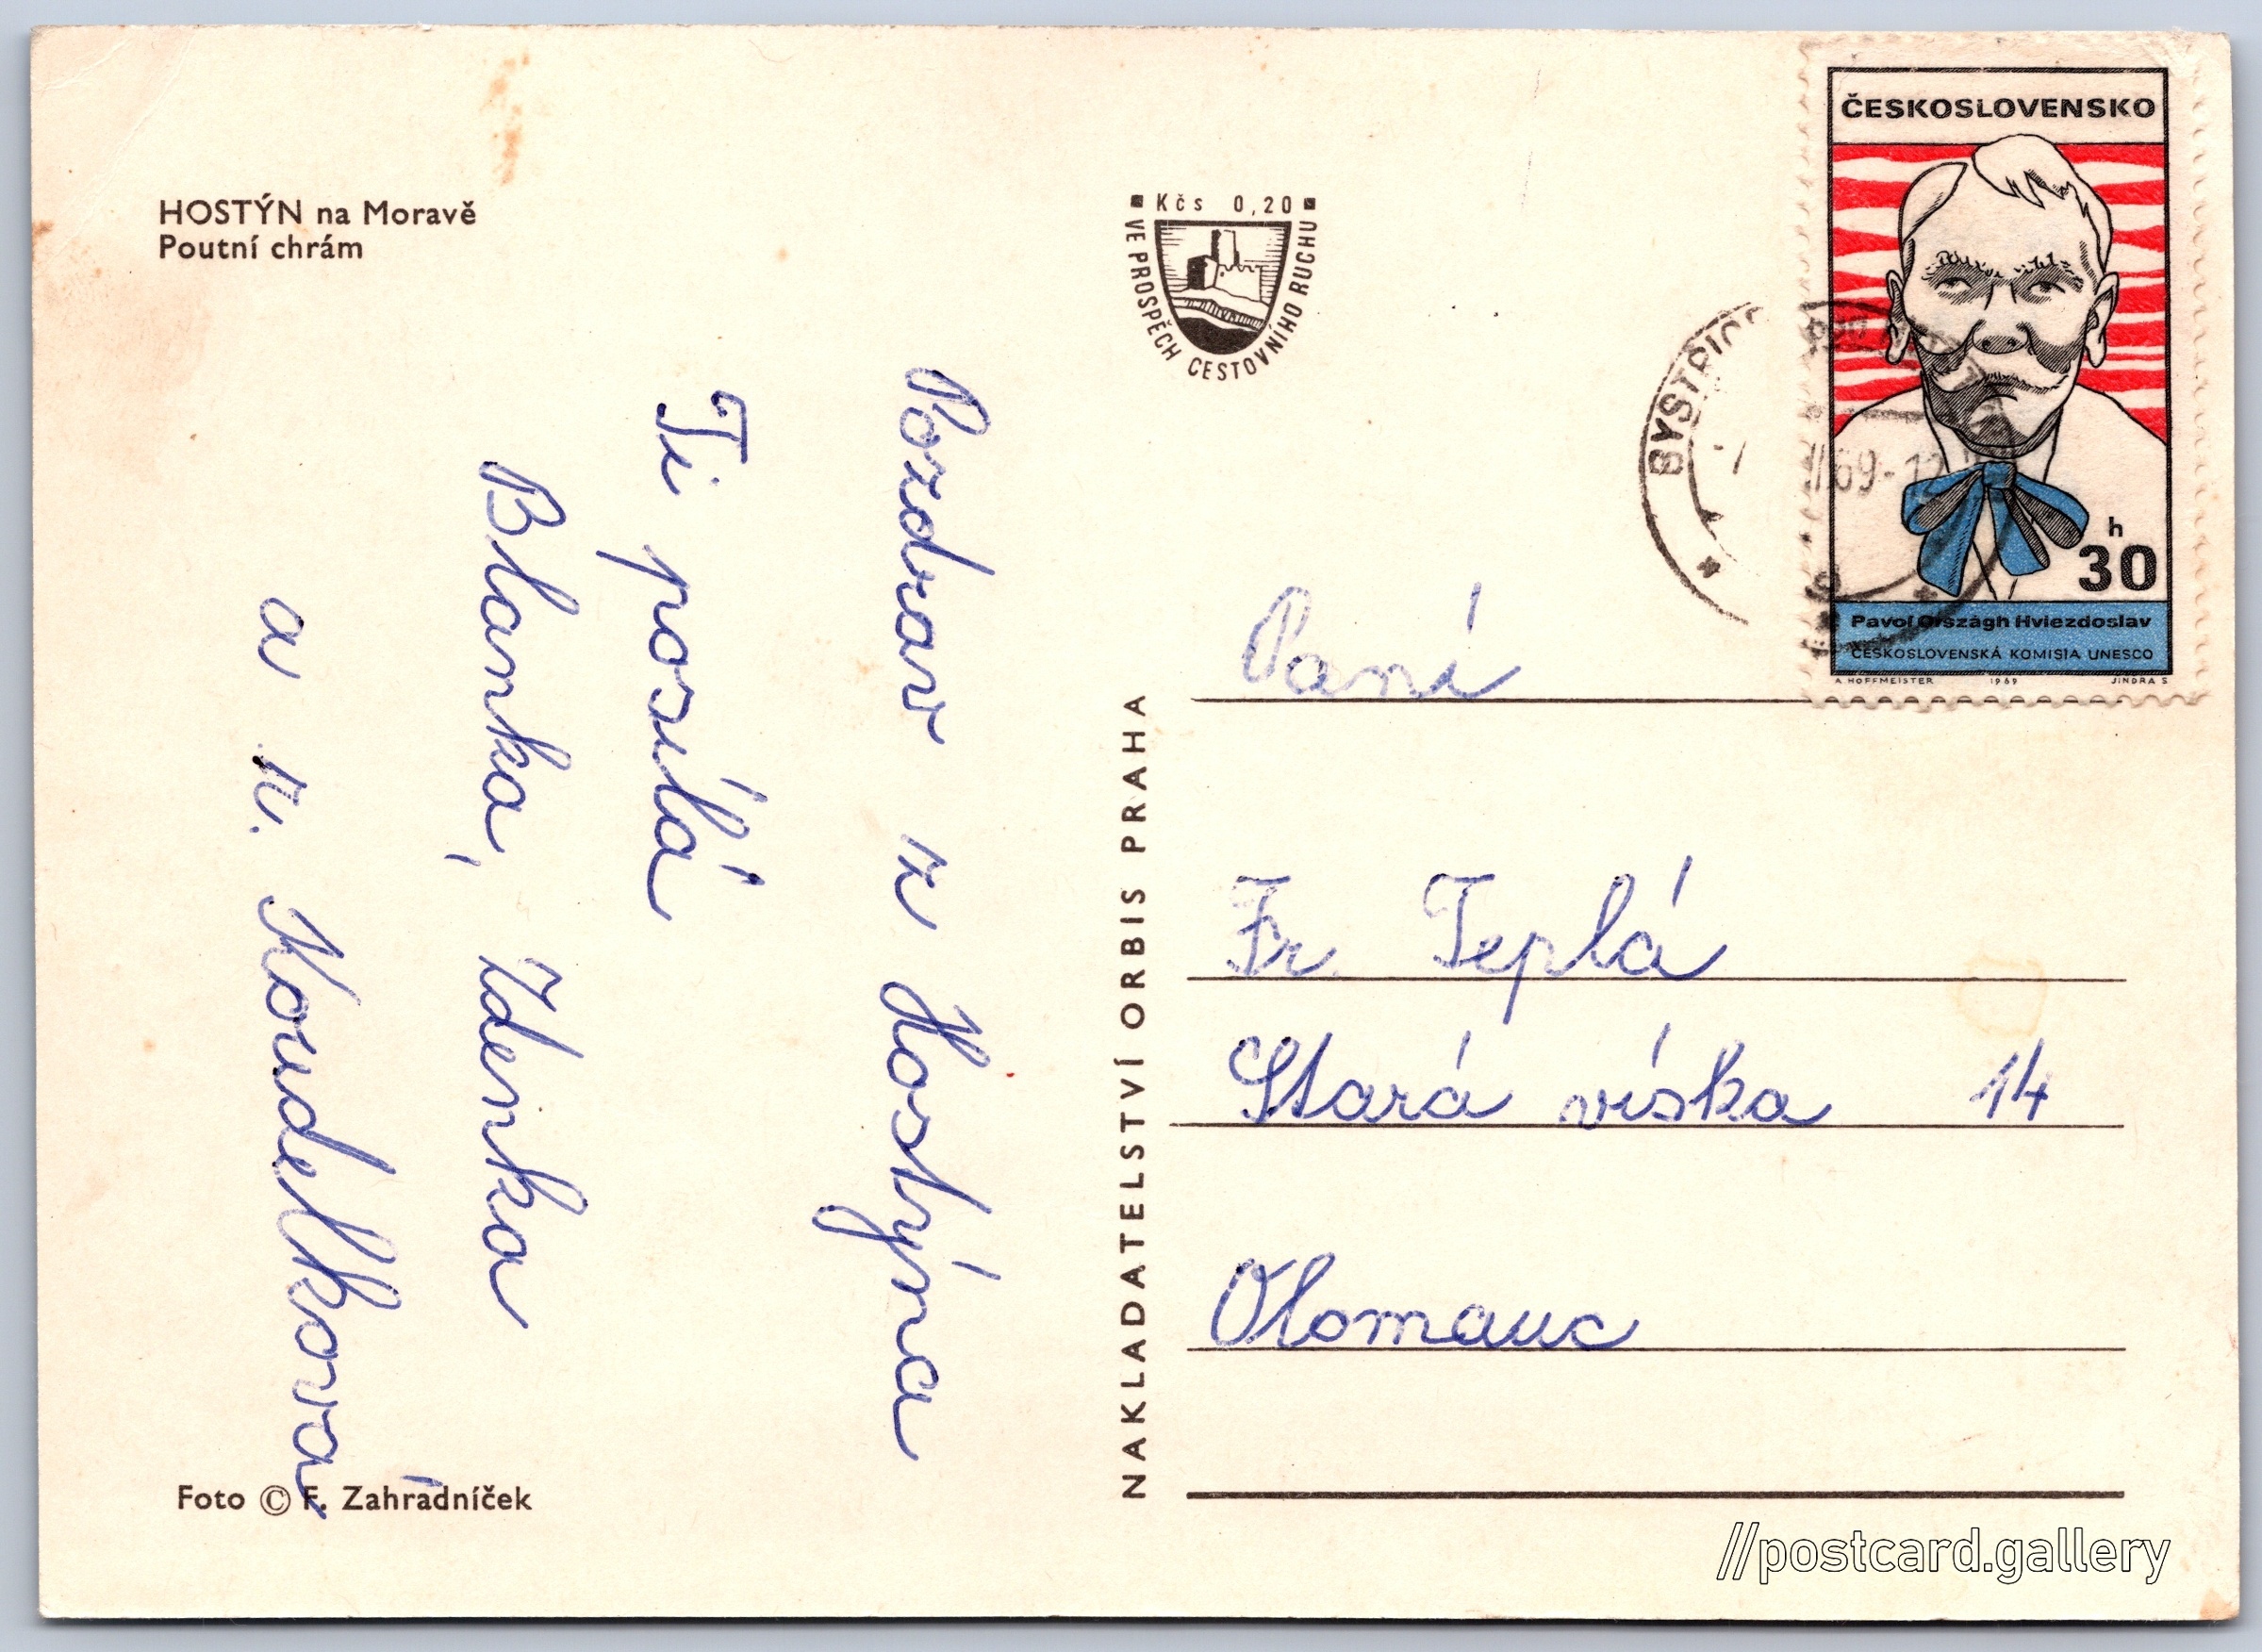 HOSTÝN na Moravě
Poutní chrám
Pozdrav z Hostýna
Ti posílá
Blanka, Zdenka
a r. Koudelková
Foto © F. Zahradníček
NAKLADATELSTVÍ ORBIS PRAHA
Kčs 0,20
VE PROSPĚCH CESTOVNÍHO RUCHU
ČESKOSLOVENSKO
h
30
Pavol Országh Hviezdoslav
ČESKOSLOVENSKÁ KOMISIA UNESCO
A HOFFMEISTER 1969 JINDRA S
BYSTŘICE
69-12
Paní
Fr. Teplá
Stará víska 14
Olomouc
//postcard.gallery